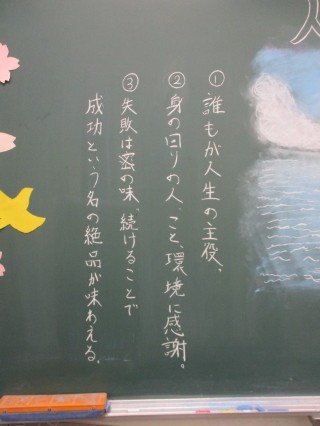 ①誰もが人生の主役、
②身の回りの人、こと、環境に感謝。
③失敗は蜜の味、続けることで
成功という名の絶品が味わえる、